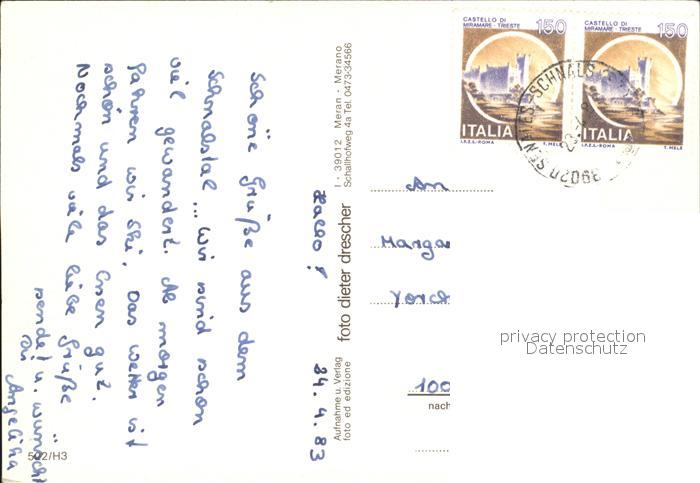 CASTELLO DI
MIRAMARE - TRIESTE
150
ITALIA
I.P.Z.S.-ROMA
T. MELE
CASTELLO DI
MIRAMARE - TRIESTE
150
ITALIA
I.P.Z.S.-ROMA
T. MELE
39020 SENALES-SCHNALS
Hallo!
24.4.83
Schöne Grüße aus dem
Schnalstal... Wir sind schon
viel gewandert. Ab morgen
fahren wir Ski. Das Wetter ist
schön und das Essen gut.
Nochmals viele liebe Grüße
sendet u. wünscht
Dir
Angelika
I - 39012 Meran - Merano
Schallhofweg 4a Tel. 0473-34566
foto dieter drescher
Aufnahme u. Verlag
foto ed edizione
An
Marga
100
nach
privacy protection
Datenschutz
502/H3